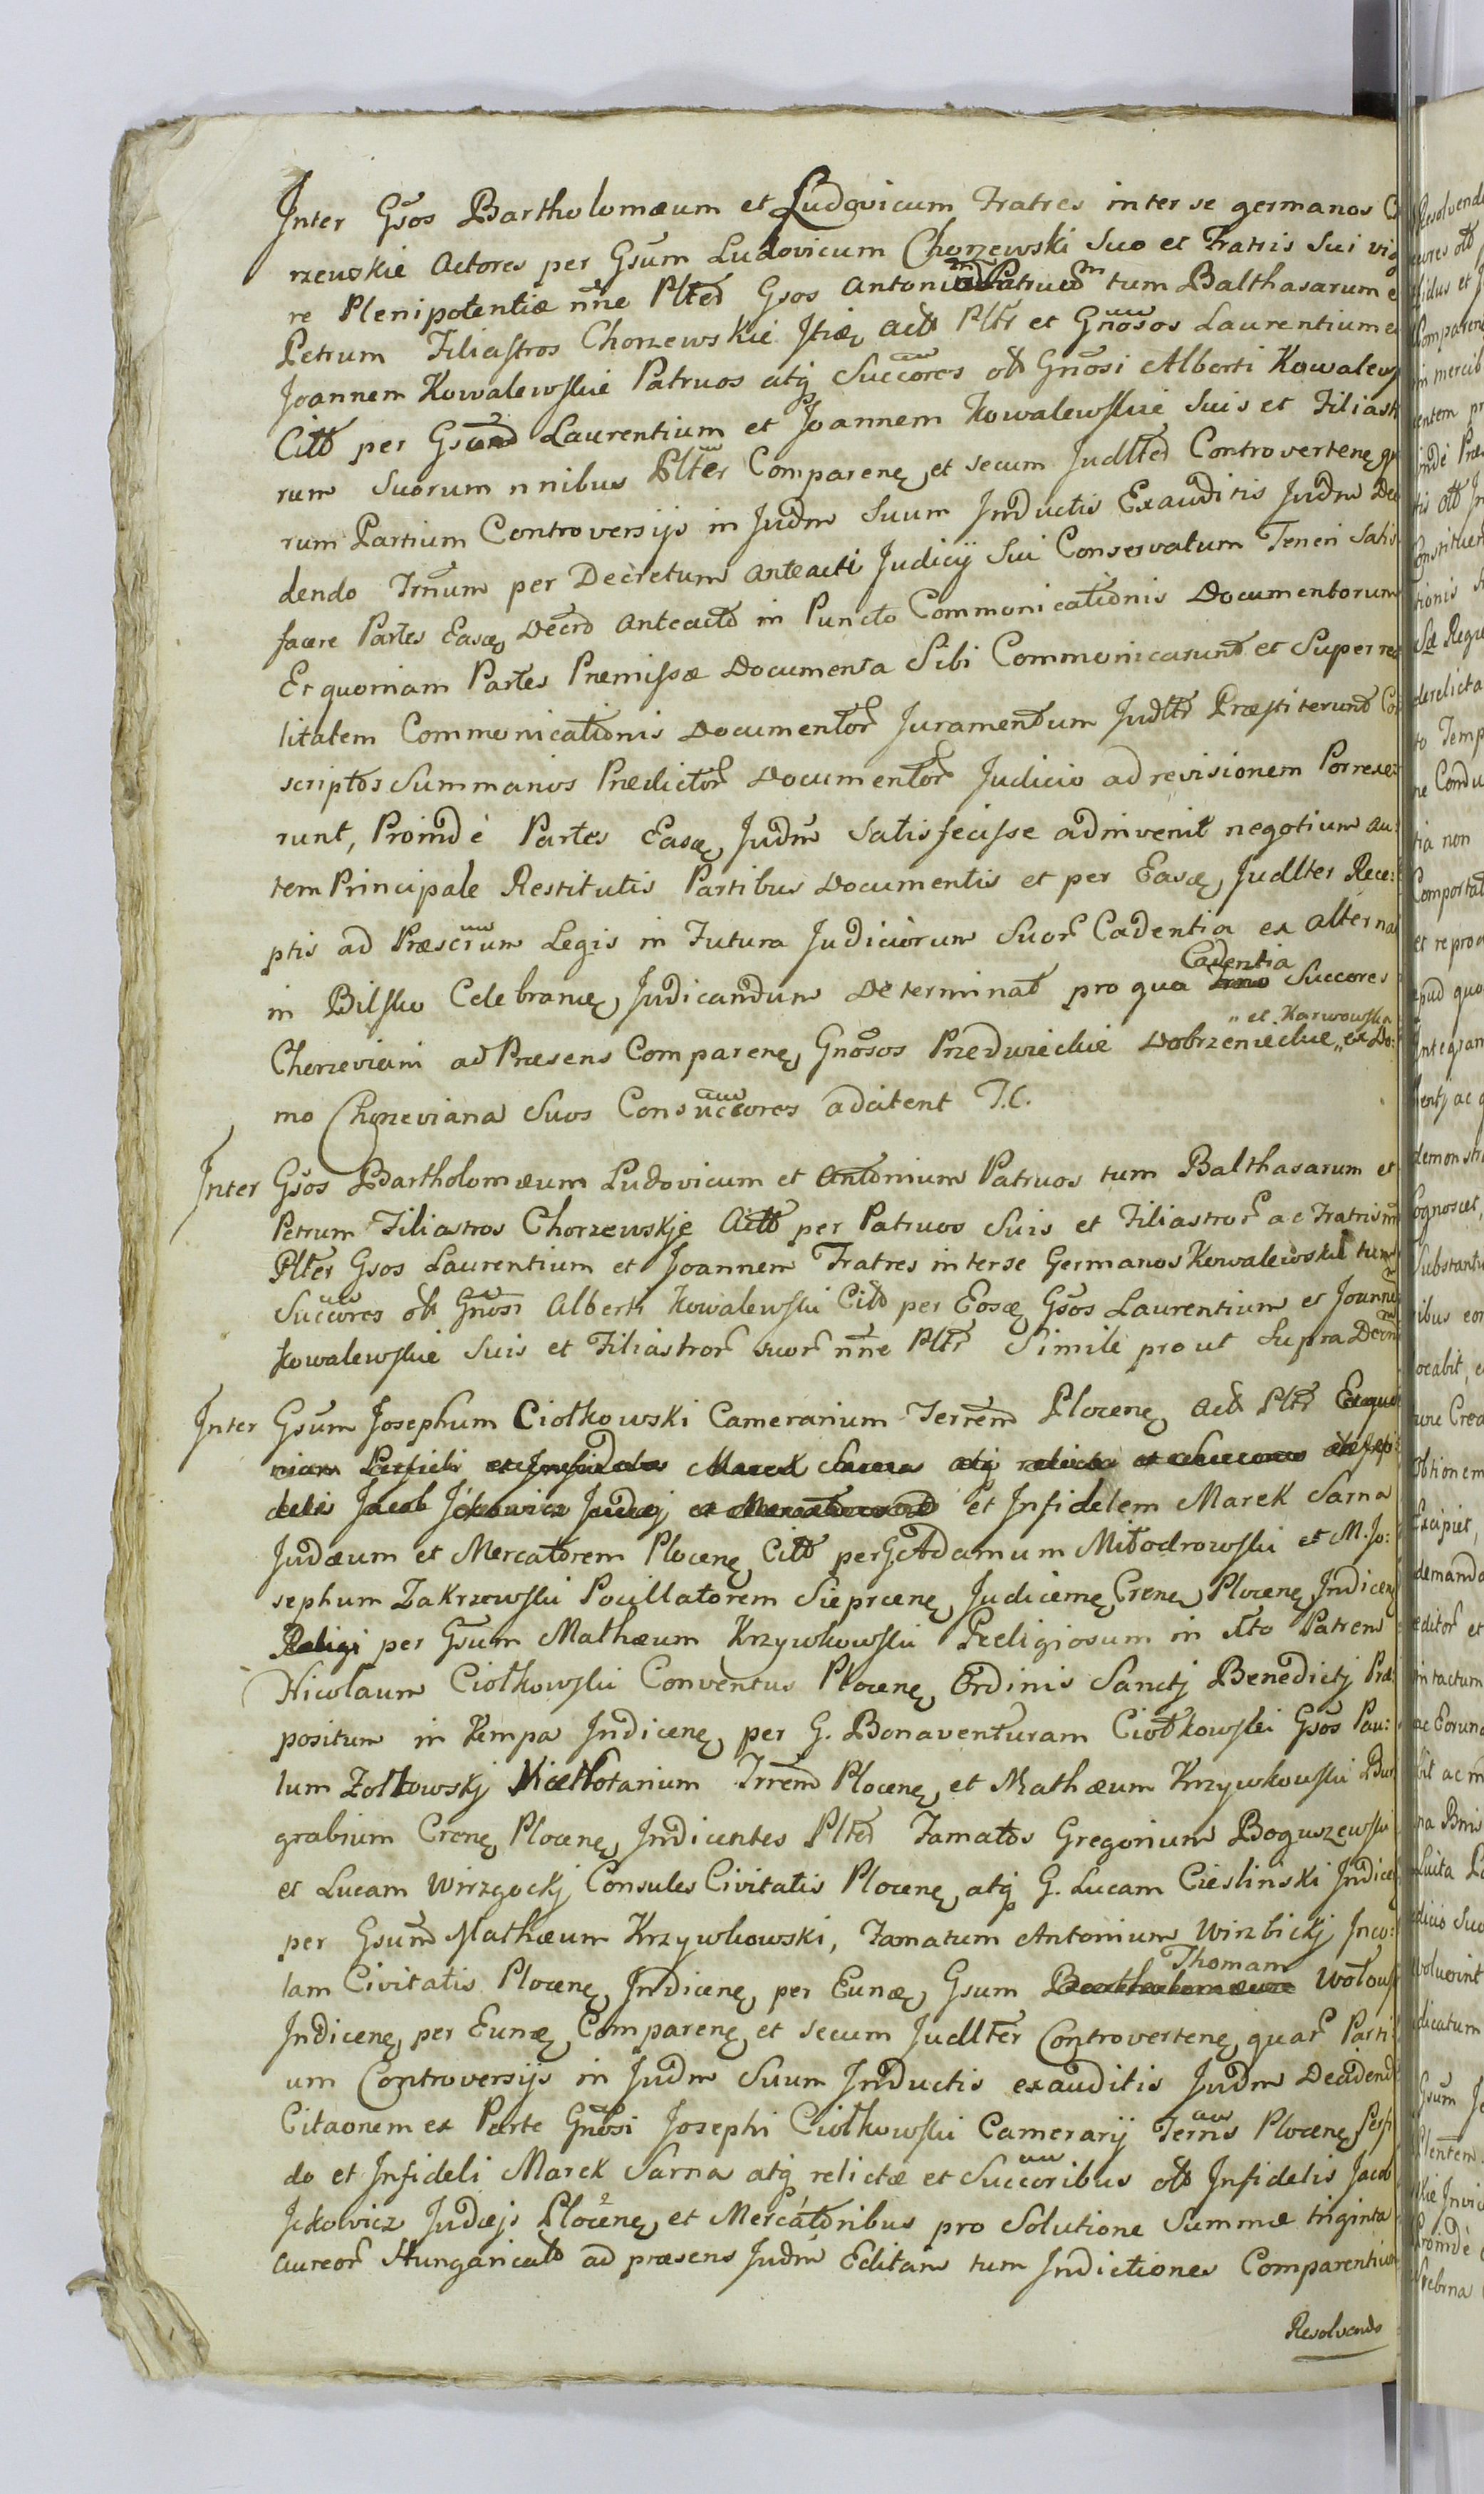 Inter Gsos Bartholomæum et Ludovicum Fratres inter se germanos
rzewskie Actores per Gsum Ludovicum Chorzewski Suo et Fratris Sui vig
re Plenipotentiæ nne Plter Gsos Antonium Patruum tum Balthasarum e
Petrum Filiastros Chorzewskie Itiæ Actt Pltr et Gnosos Laurentium e
Joannem Kowalewskie Patruos atq Succores ott Gnosi Alberti Kowalews
Citt per Gsum Laurentium et Joannem Kowalewskie Suis et Filiast
rum Suorum nnibus Plter Comparenę et secum Judlter Controvertenę qu
rum Partium Controversijs in Judm Suum Inductis Exauditis Judm Deci
dendo Trnum per Decretum anteacti Judicij Sui Conservatum Teneri Satis
facere Partes Easdę Decro Anteacto in Puncto Communicationis Documentorum
Et quoniam Partes Præmissæ Documenta Sibi Communicarunt et Super rea
litatem Communicationis Documentor Juramentum Judltr Præstiterunt Con
scriptos Summarios Prædictor Documentor Judicio ad revisionem Porrexe:
runt, Proindè Partes Easdę Judm Satisfecisse adinvenit negotium au:
tem Principale Restitutis Partibus Documentis et per Easdę Judlter Rece:
ptis ad Præscrum Legis in Futura Judiciorum Suor Cadentia ex alterna
in Bilsko Celebranę Judicandum Determinat pro qua Cadentia Succores
Chorzeviani ad Præsens Comparenę Gnosos Przedwieckie Dobrzenieckie „ et Karwowska „ ex Do:
mo Chorzeviana Suos Consuccores adcitent T.C.
Inter Gsos Bartholomæum Ludovicum et Antonium Patruos tum Balthasarum et
Petrum Filiastros Chorzewskje Actt per Patruos Suis et Filiastror ac Fratris nn
Plter Gsos Laurentium et Joannem Fratres inter se Germanos Kowalewskie tum
Succores ott Gnosi Alberti Kowalewski Citt per Eosdę Gsos Laurentium et Joannem
Kowalewskie Suis et Filiastror suor nne Pltr Simile prout Supra Decrm
Inter Gsum Josephum Ciołkowski Camerarium Terrem Plocenę Actt Pltr Et quo
niam Perfidi et Infideles Marek Sarna atq relicta et Succores ott Infi
delis Jacob Jckowicz Judæj et Mercatores et Infidelem Marek Sarna
Judæum et Mercatorem Plocenę Citt per G. Adamum Miłodrowski et M. Jo:
sephum Zakrzewski Pocillatorem Sieprcenę Judicemę Crenę Plocenę Indicenę
Religi per Gsum Mathæum Krzywkowski Religiosum in Xto Patrem
Nicolaum Ciołkowski Conventus Plocenę Ordinis Sanctj Benedictj Præ:
positum in Kempa Indicenę per G. Bonaventuram Ciołkowski Gsos Pau:
lum Zołtowskj Vice Notarium Trrem Plocenę et Mathæum Krzywkowski Bur
grabium Crenę Plocenę Indicentes Plter Famatos Gregorium Boguszewski
et Lucam Wirzgockj Consules Civitatis Plocenę atq G. Lucam Cieslinski Indice
per Gsum Mathæum Krzywkowski, Famatum Antonium Wirzbickj Inco:
lam Civitatis Plocenę Indicenę per Eundę Gsum Bartholomæum Thomam Wołows
Indicenę per Eundę Comparenę et secum Judlter Controvertenę quar Parti:
um Controversijs in Judm Suum Inductis exauditis Judm Decidendo
Citaonem ex Parte Gnosi Josephi Ciołkowski Camerarij Terris Plocenę Perfi
do et Infideli Marek Sarna atq relictæ et Succoribus ott Infidelis Jacob
Jckowicz Judæjs Plocenę et Mercatoribus pro Solutione Summæ triginta
Aureor Hungaricalt ad præsens Judm Editam tum Indictiones Comparentium
Resolvendo